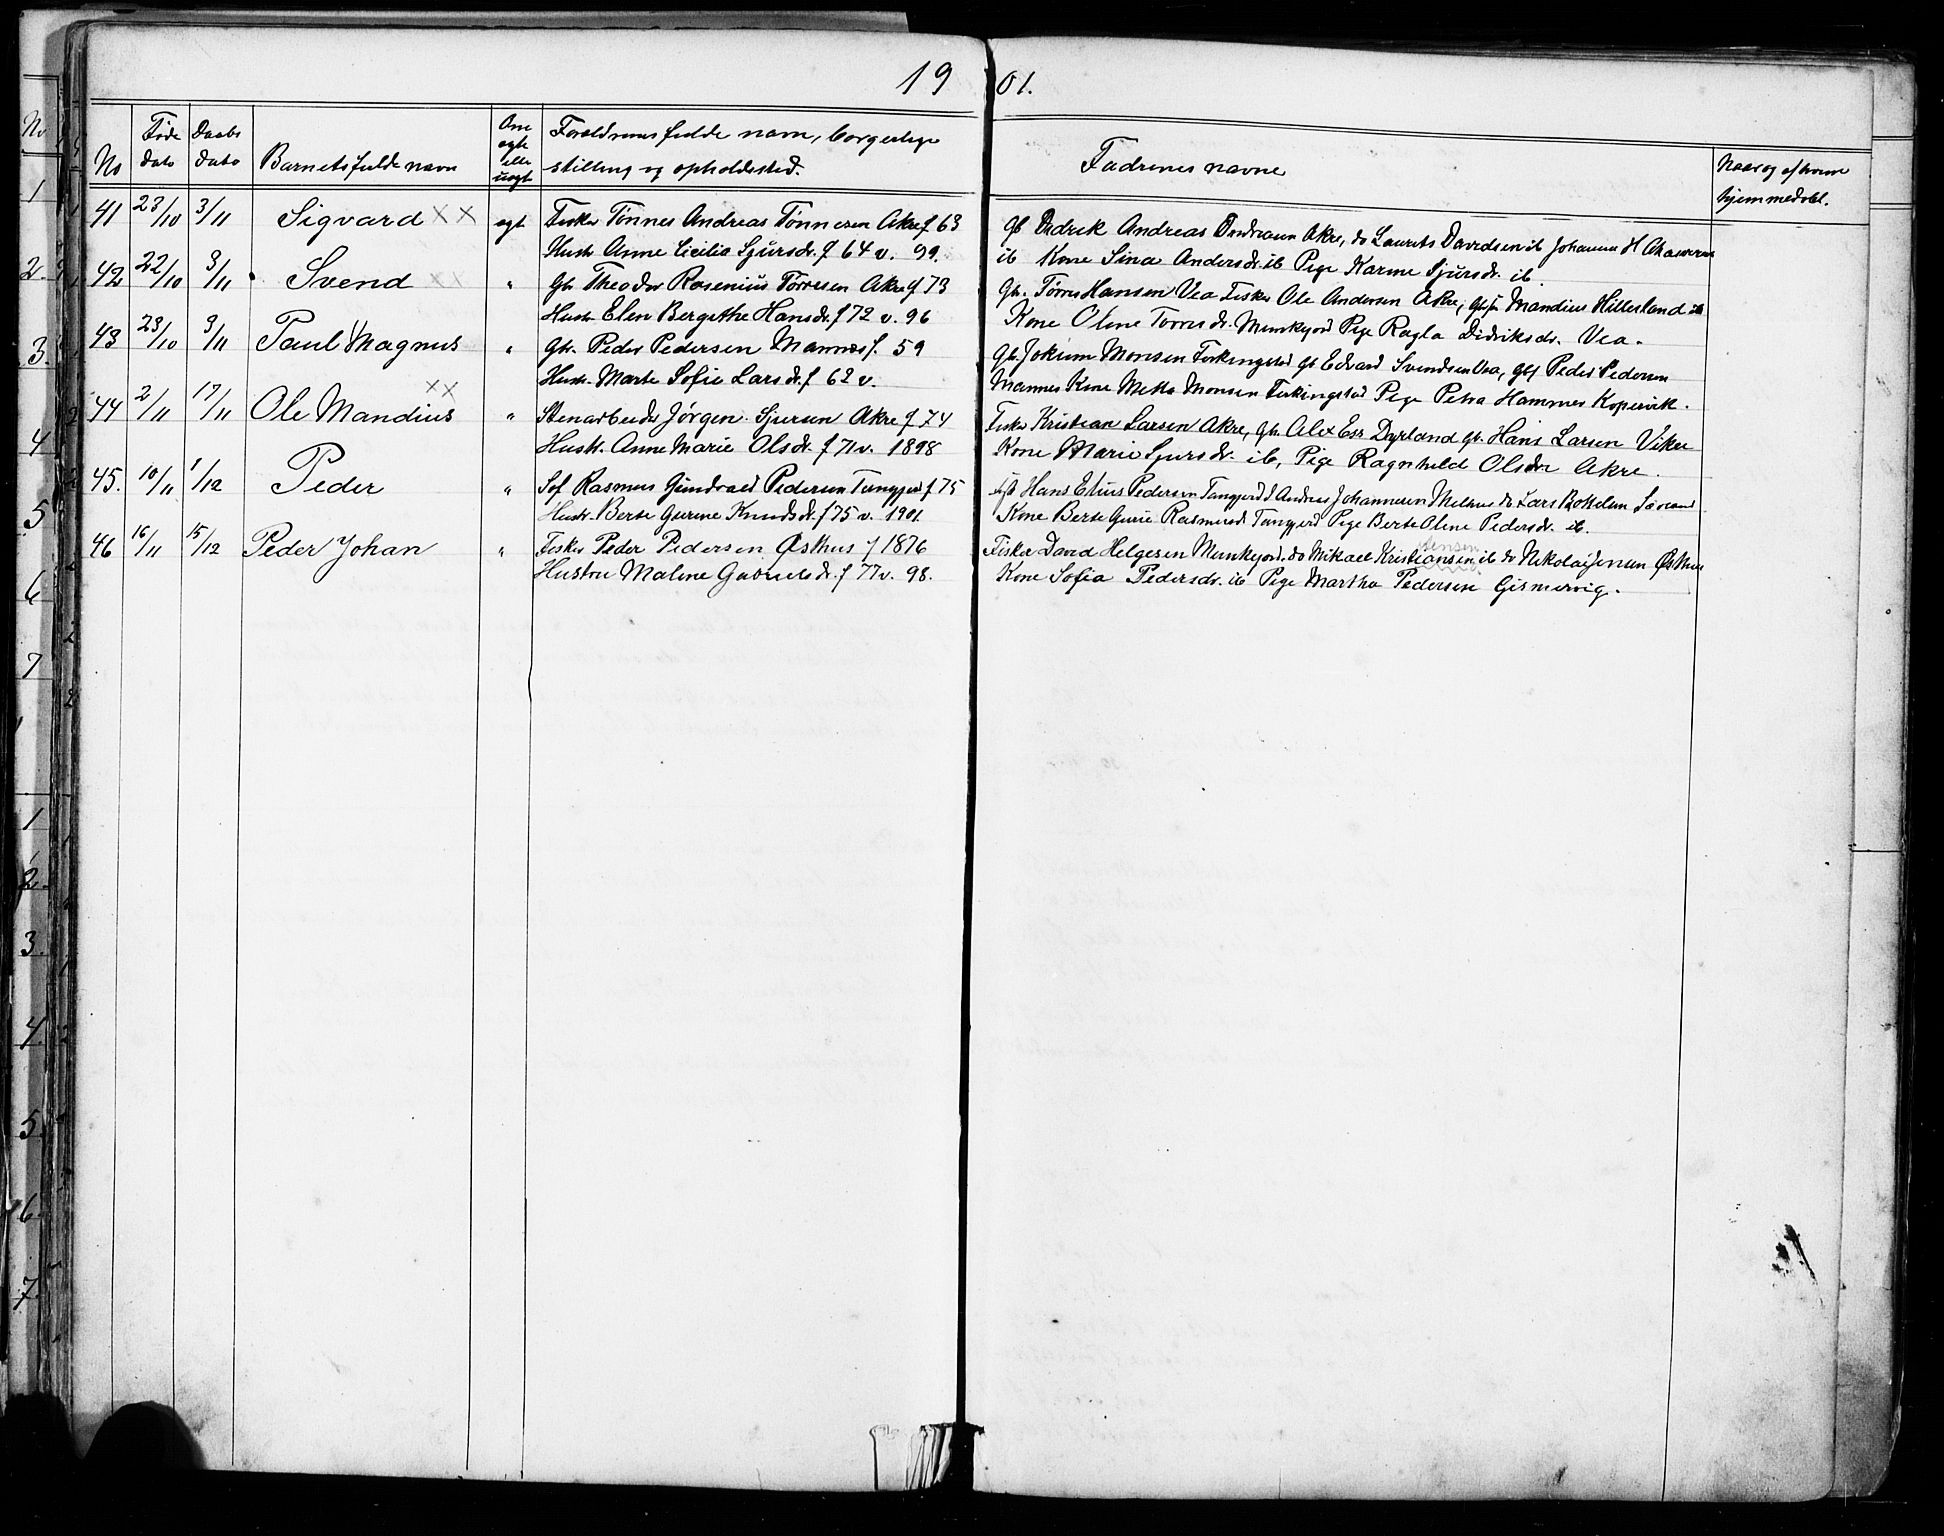 1901.
No | Føde dato | Daabs dato | Barnets fulde navn | Om egte eller uegte | Forældrenes fulde navn, borgerlige stilling og opholdssted. | Fadrenes navne | Naar og af hvem hjemmedøbt.
41 23/10 3/11 Sigvard XX egt. Fisker Tønnes Andreas Tønnesen Akre f 63 Gb Didrik Andreas Andreasen Akre, do Laurits Davidsen ib Johannes H
Hust. Anne Cicilia Sjursdr. f 64 v. 99. ib Kone Sina Andersdr. ib Pige Karine Sjursdr. ib.
42 22/10 3/11 Svend XX " Gb. Theodor Rosenius Torresen Akre f 73 Gb. Tørres Hansen Vea Fisker Ole Andersen Akre, Mandius Hillesland
Hustr. Elen Bergithe Hansdr. f 72 v. 96 Kone Oline Torresdr. Munkejord Pige Ragla Didriksdr. Vea.
43 23/10 3/11 Paul Magnus " Gb. Peder Pedersen Mannes f. 59 Gb. Jokum Monsen Ferkingstad Gb Edvard Svendsen Vea, Peder Pedersen
Hustr. Marte Sofie Larsdr. f 62 v. Mannes Kone Metta Monsen Ferkingstad Pige Petra Hammer Kopervik.
44 2/11 17/11 Ole Mandius XX " Stenarbeider Jørgen Sjursen Akre f 74 Fisker Kristian Larsen Akre, Gb. Dyrland gb. Hans Larsen Vikre
Hustr. Anne Marie Olsdr. f 71 v. 1898 Kone Marie Sjursdr. ib, Pige Ragnhild Olsdtr Akre.
45. 10/11 1/12 Peder " Rasmus Gundvald Pedersen Tangjerd f 75 Hans Elius Pedersen Tangjerd Andreas Johannesen do Lars
Hustr. Berte Gurine Knudsdr. f 75 v. 1901. Kone Berte Gurie Rasmusdr Tangjerd Pige Berte Oline Pedersdr. ib.
46 16/11 15/12 Peder Johan " Fisker Peder Pedersen Østhus f 1876 Fisker David Helgesen Munkejord. do Mikael Kristiansen ib do Nikolai Jensen Østhus
Hustru Maline Gabrielsdr. f 77 v. 98. Kone Sofia Pedersdr. ib Pige Martha Pedersen Gismervig.